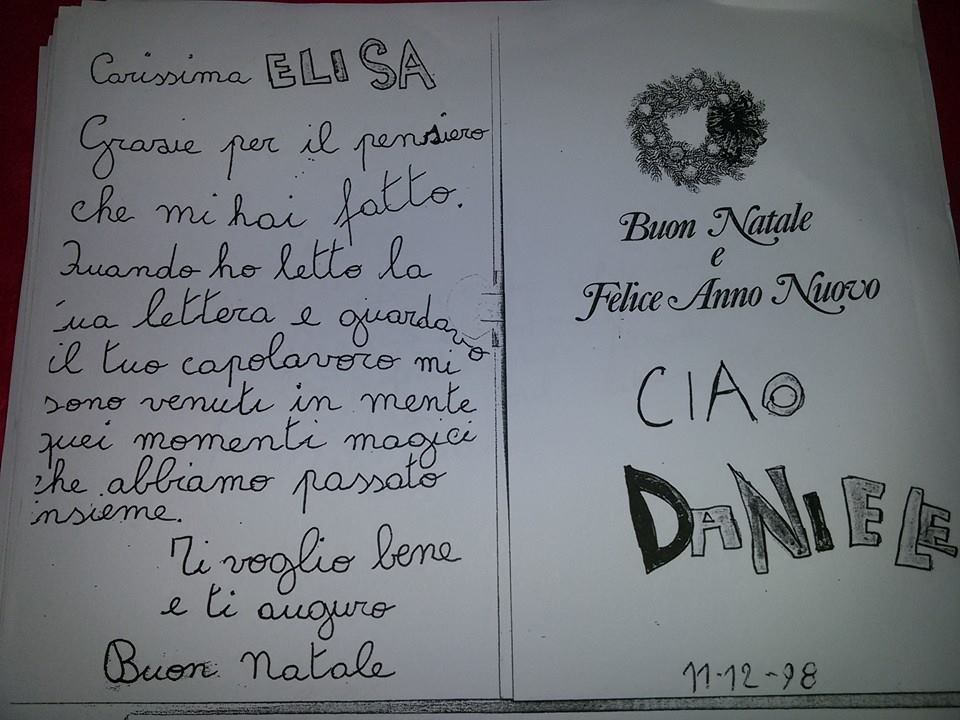 Carissima ELISA
Grazie per il pensiero
che mi hai fatto.
Quando ho letto la
tua lettera e guardavo
il tuo capolavoro mi
sono venuti in mente
quei momenti magici
che abbiamo passato
insieme.
Ti voglio bene
e ti auguro
Buon Natale
Buon Natale
e
Felice Anno Nuovo
CIAO
DANIELE
11-12-98